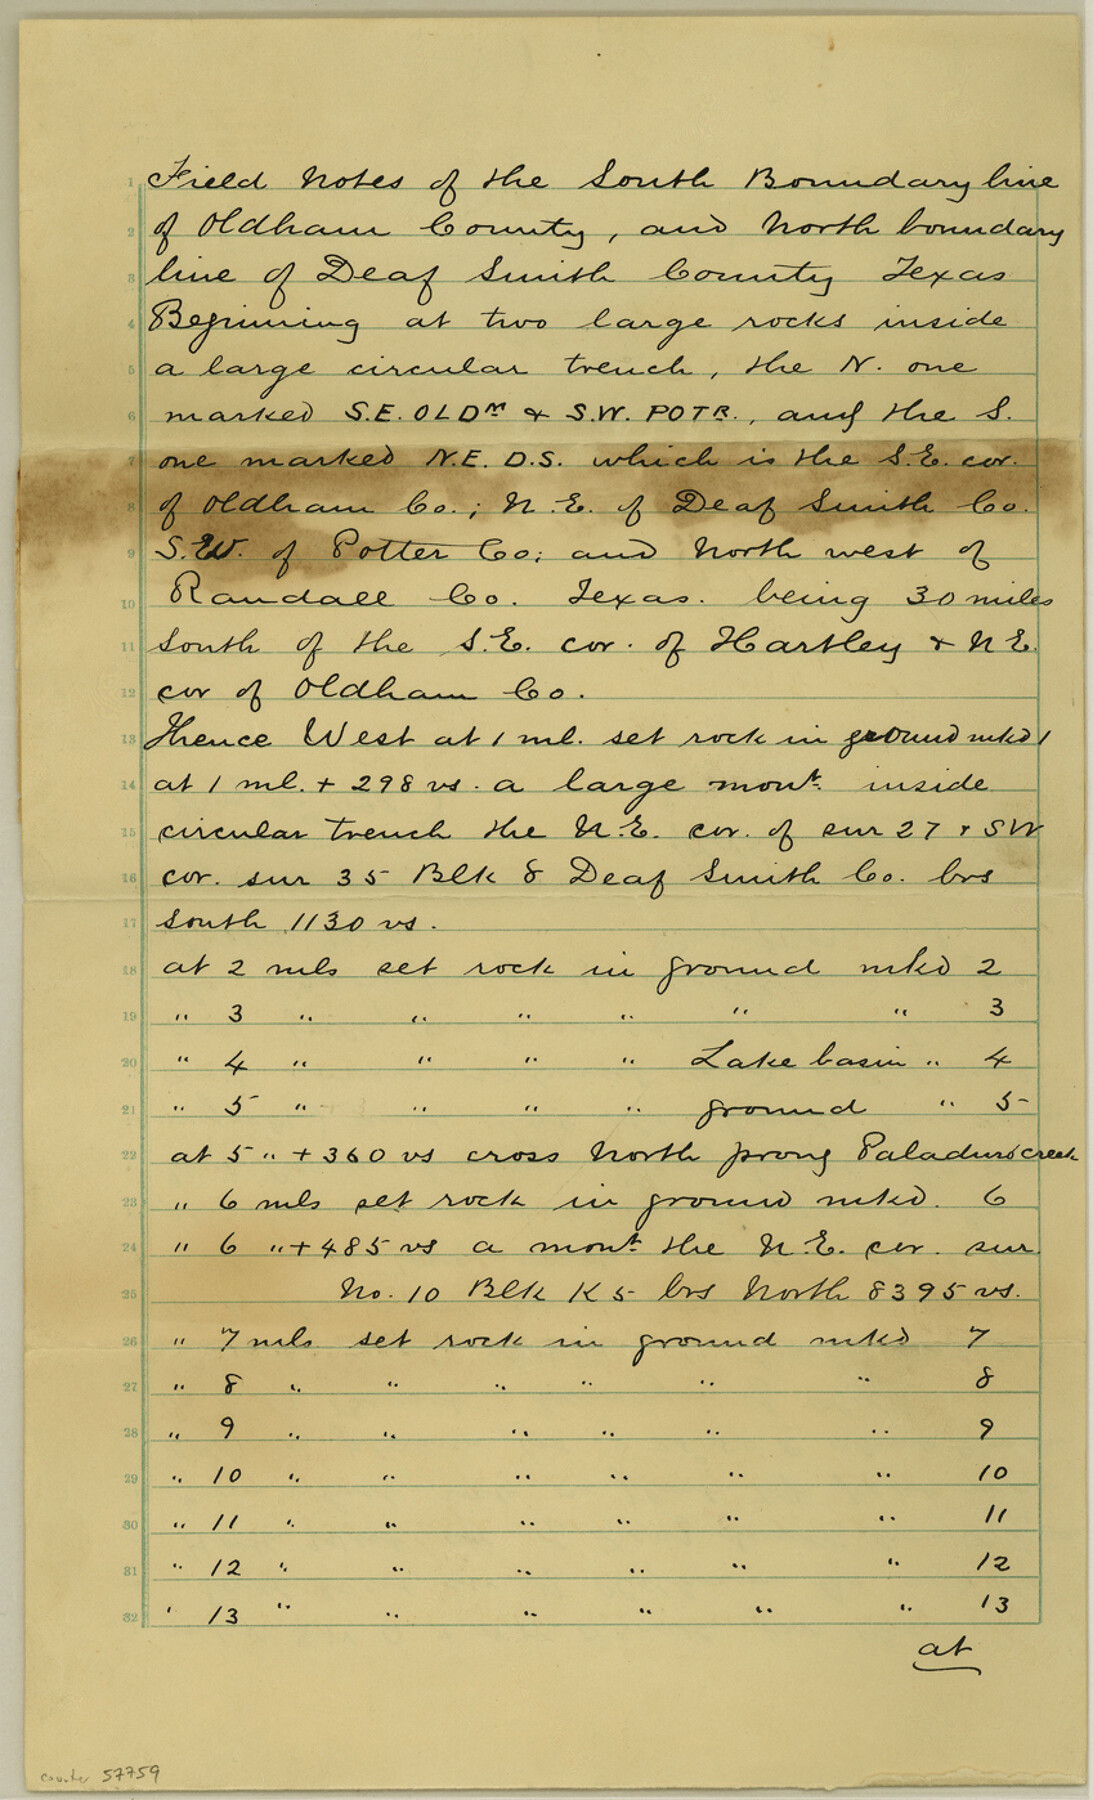 1 Field Notes of the South Boundary line
2 of Oldham County, and North boundary
3 line of Deaf Smith County Texas
4 Beginning at two large rocks inside
5 a large circular trench, the N. one
6 marked S.E. OLDM & S.W. POTR., and the S.
7 one marked N.E. D.S. which is the S.E. cor.
8 of Oldham Co.; N.E. of Deaf Smith Co.
9 S.W. of Potter Co; and North west of
10 Randall Co. Texas. being 30 miles
11 South of the S.E. cor. of Hartley & N E.
12 cor of Oldham Co.
13 Thence West at 1 ml. set rock in ground mkd 1
14 at 1 ml. + 298 vs. a large mont. inside
15 circular trench the N.E. cor. of sur 27 & SW
16 cor. sur 35 Blk 8 Deaf Smith Co. brs
17 South 1130 vs.
18 at 2 mls set rock in ground mkd 2
19 " 3 " " " " " " 3
20 " 4 " " " " Lake basin " 4
21 " 5 " " " " ground " 5
22 at 5 " + 360 vs cross North prong Paladuro creek
23 " 6 mls set rock in ground mkd. 6
24 " 6 " + 485 vs a mont the N.E. cor. sur
25 No. 10 Blk K 5 brs North 8395 vs.
26 " 7 mls set rock in ground mkd 7
27 " 8 " " " " " " 8
28 " 9 " " " " " " 9
29 " 10 " " " " " " 10
30 " 11 " " " " " " 11
31 " 12 " " " " " " 12
32 " 13 " " " " " " 13
at
counter 57759